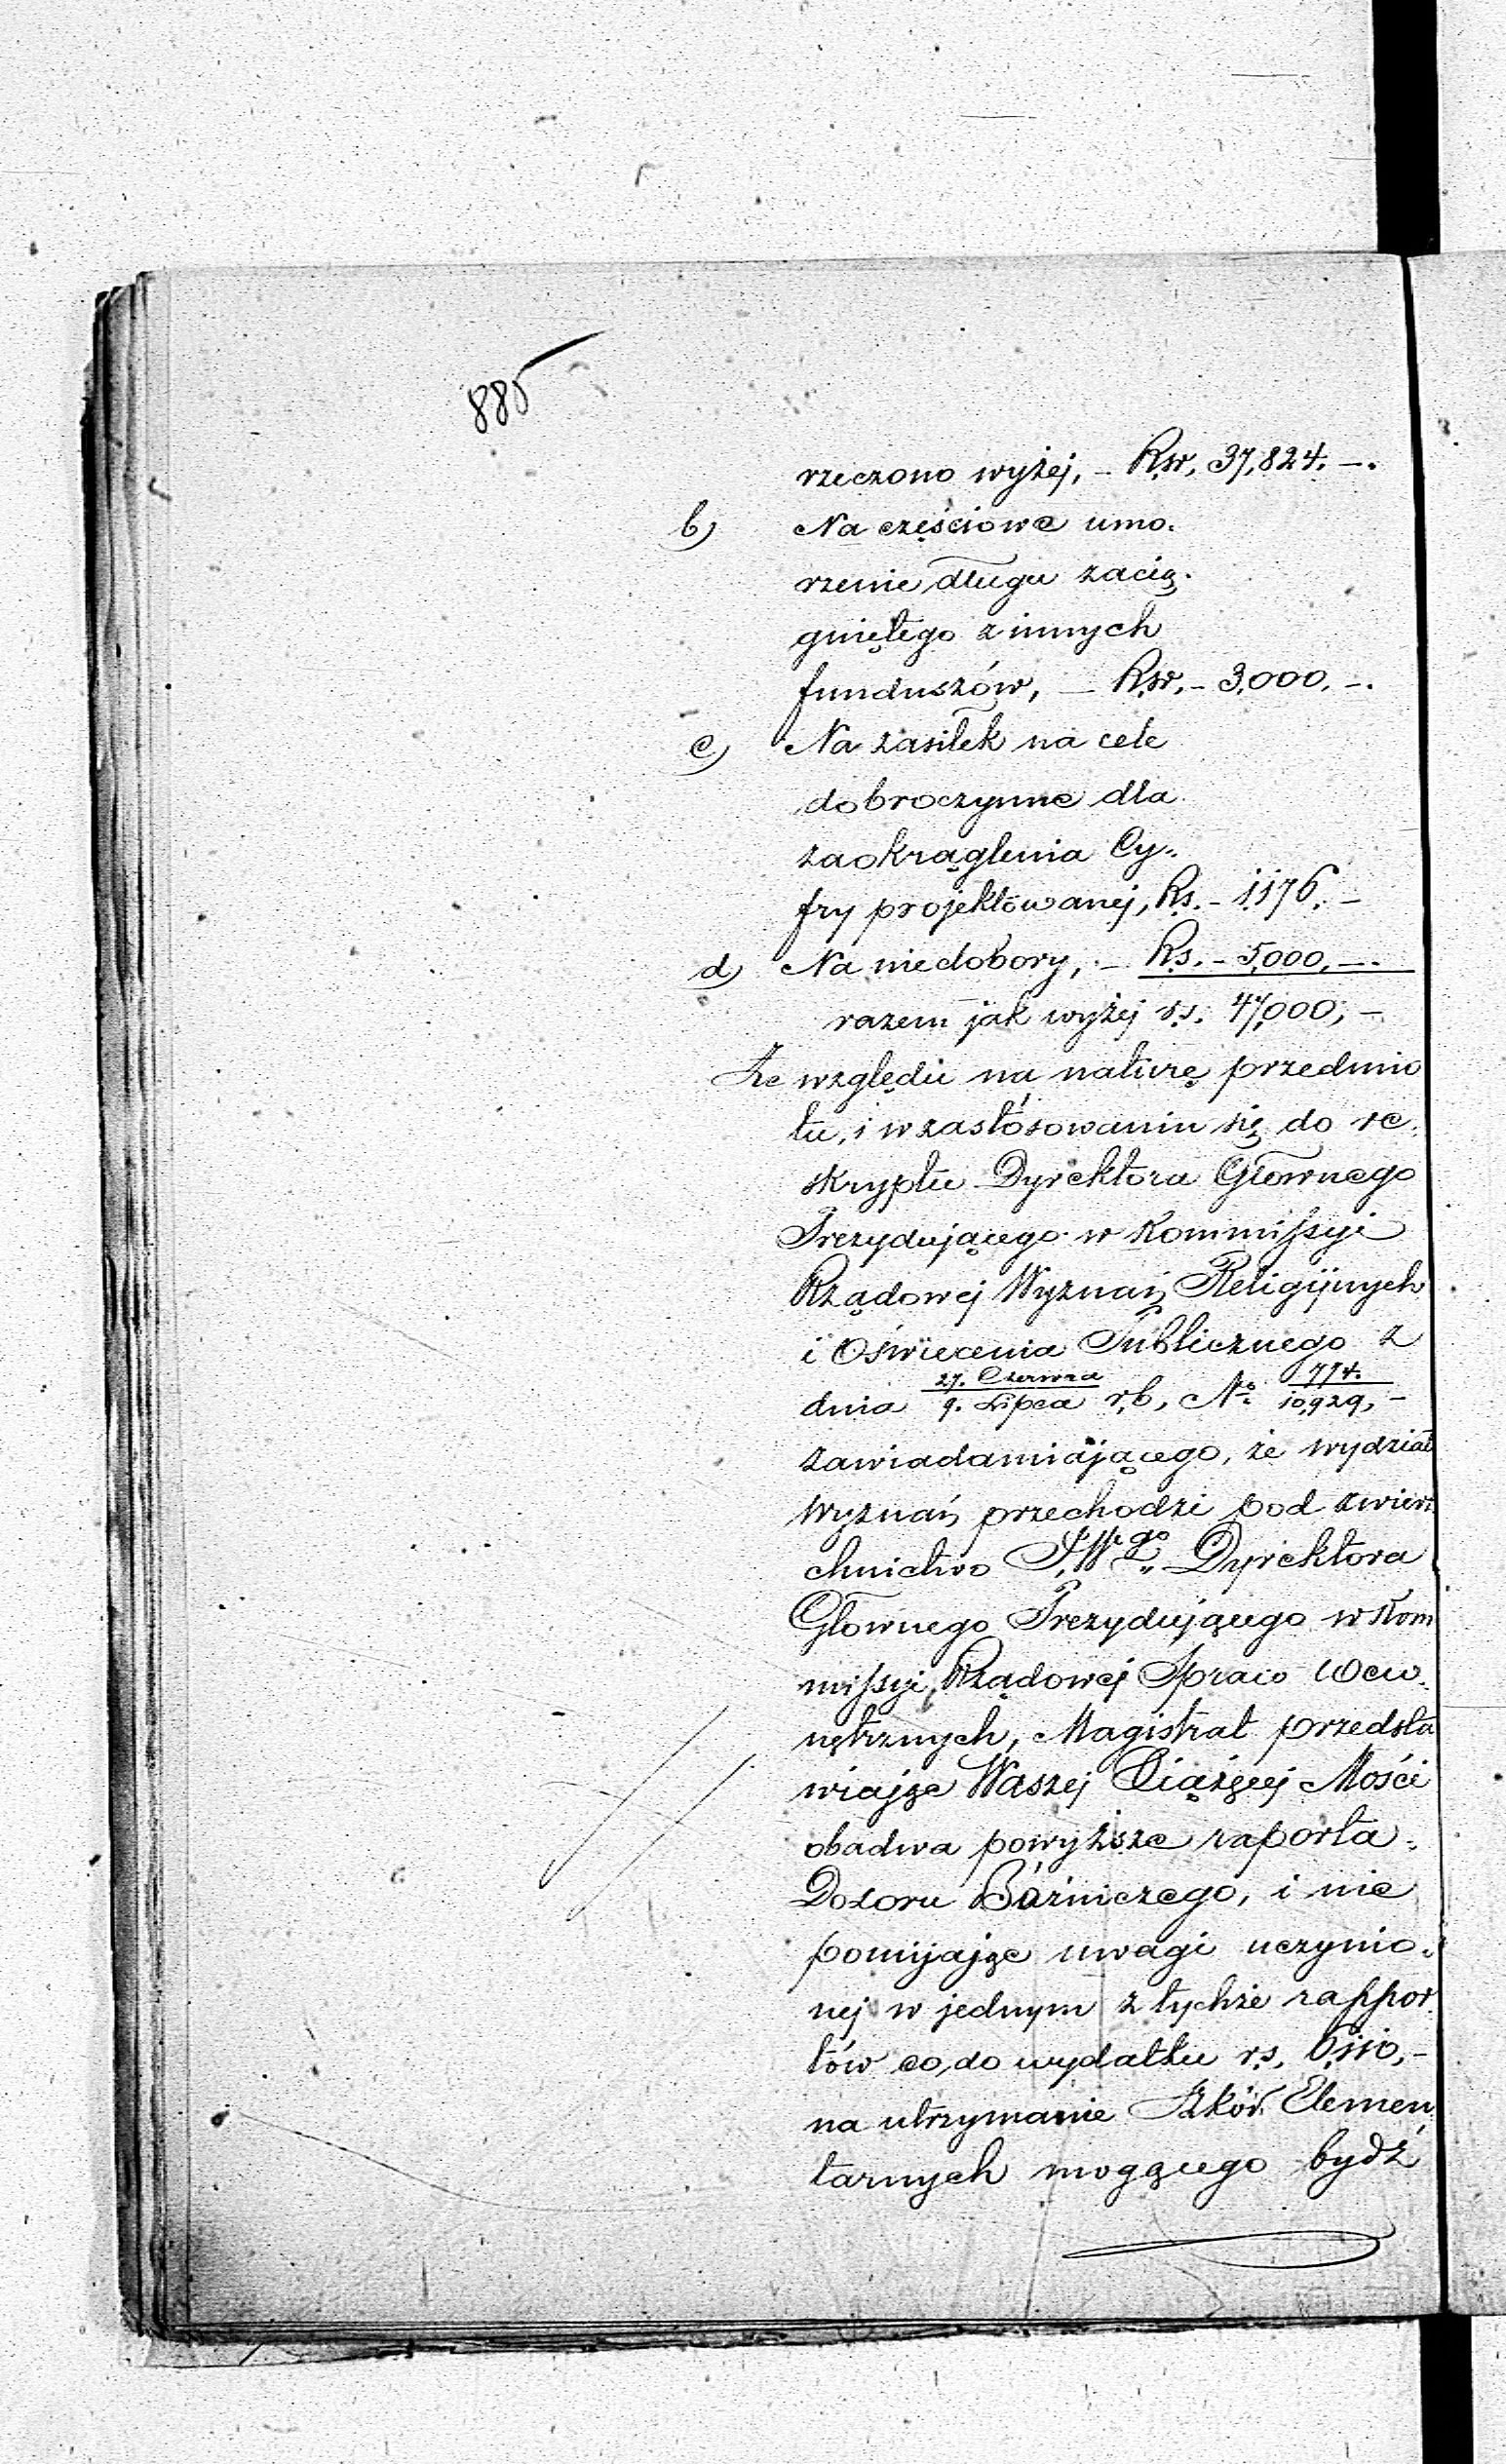 885
rzeczono wyżej, – Rsr. 37,824. –.
b) Na częściowe umo-
rzenie długu zacią-
gniętego z innych
funduszów, – Rsr. – 3,000. –.
c) Na zasiłek na cele
dobroczynne dla
zaokrąglenia Cy-
fry projektowanej, Rs. – 1,176. –
d) Na niedobory, – Rs. – 5,000. –.
razem jak wyżej rs. 47,000, –
Ze względu na naturę przedmio
tu, i w zastósowaniu się do re-
skryptu Dyrektora Głównego
Prezydującego w Kommissyi
Rządowej Wyznań Religijnych
i Oświecenia Publicznego z
dnia 27. Czerwca / 9. Lipca r.b. No 774. / 10,929, –
zawiadamiającego, że wydział
wyznań przechodzi pod zwierz
chnictwo JWgo Dyrektora
Głównego Prezydującego w Kom
missyi Rządowej Spraw Wew-
nętrznych, Magistrat przedsta
wiając Waszej Xiążęcej Mości
obadwa powyższe raporta
Dozoru Bóżniczego, i nie
pomijając uwagi uczynio-
nej w jednym z tychże rappor
tów co do wydatku rs. 6,110, –
na utrzymanie Szkół Elemen
tarnych mogącego bydź